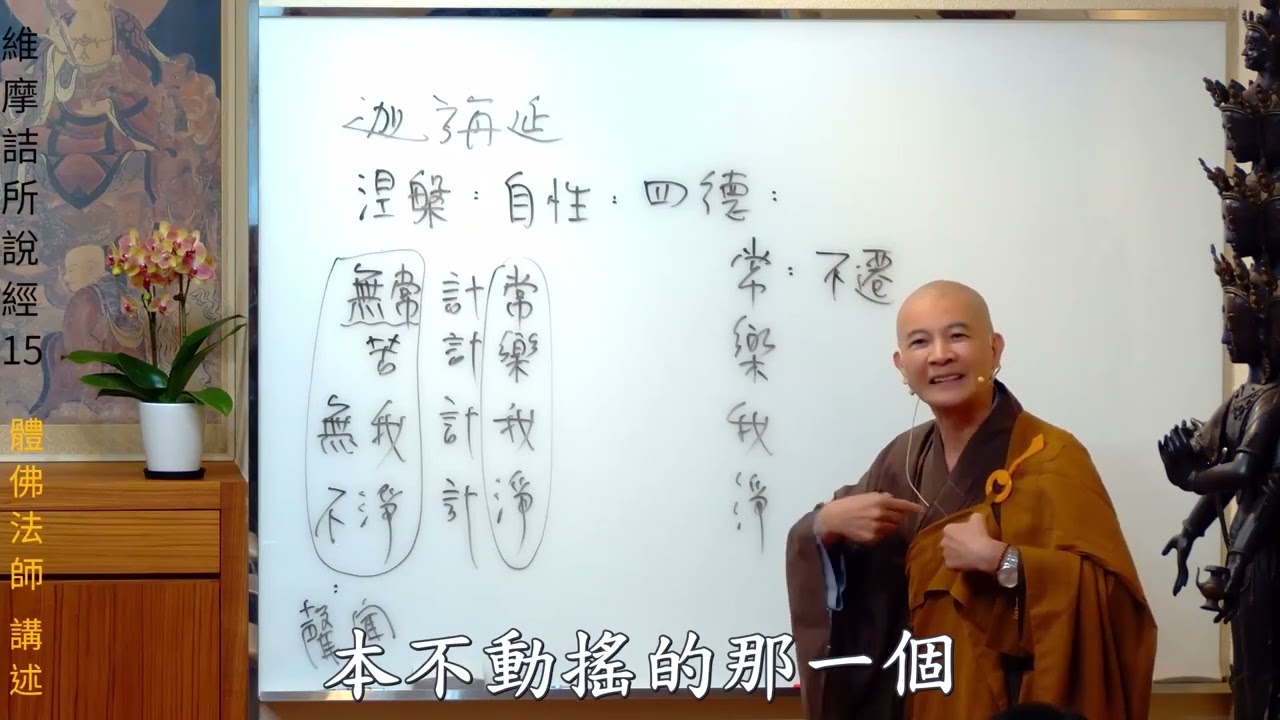 維摩詰所說經15
體佛法師 講述
迦旃延
涅槃：自性：四德：
常：不遷
樂
我
淨
無常 計 常
苦 計 樂
無我 計 我
不淨 計 淨
本不動搖的那一個